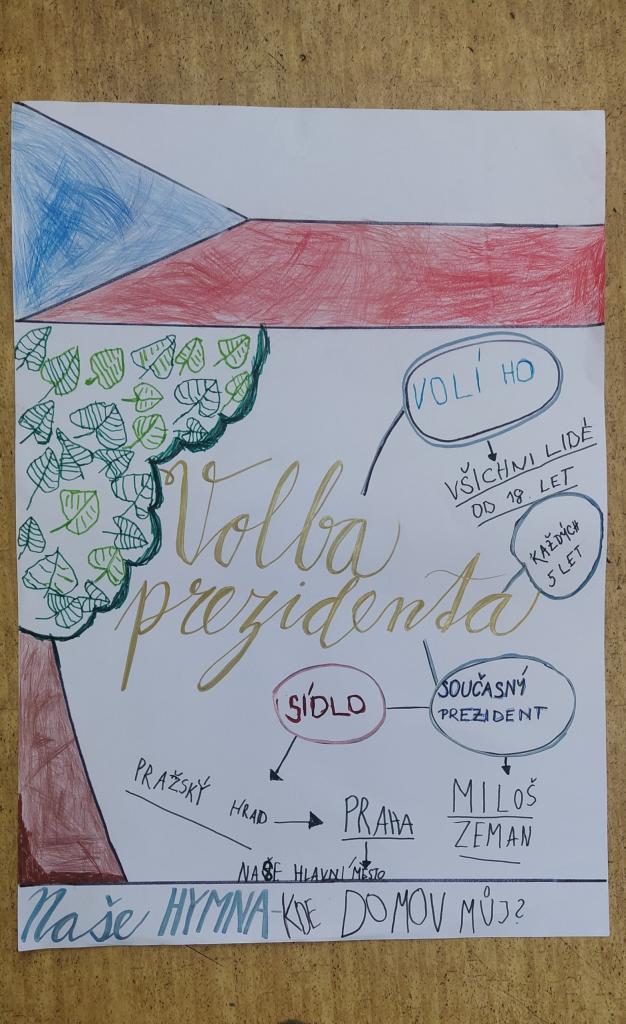 VOLÍ HO
VŠICHNI LIDÉ
OD 18. LET
Volba
prezidenta
KAŽDÝCH
5 LET
SOUČASNÝ
PREZIDENT
MILOŠ
ZEMAN
SÍDLO
PRAŽSKÝ
HRAD
PRAHA
NAŠE HLAVNÍ MĚSTO
Naše HYMNA - KDE DOMOV MŮJ?